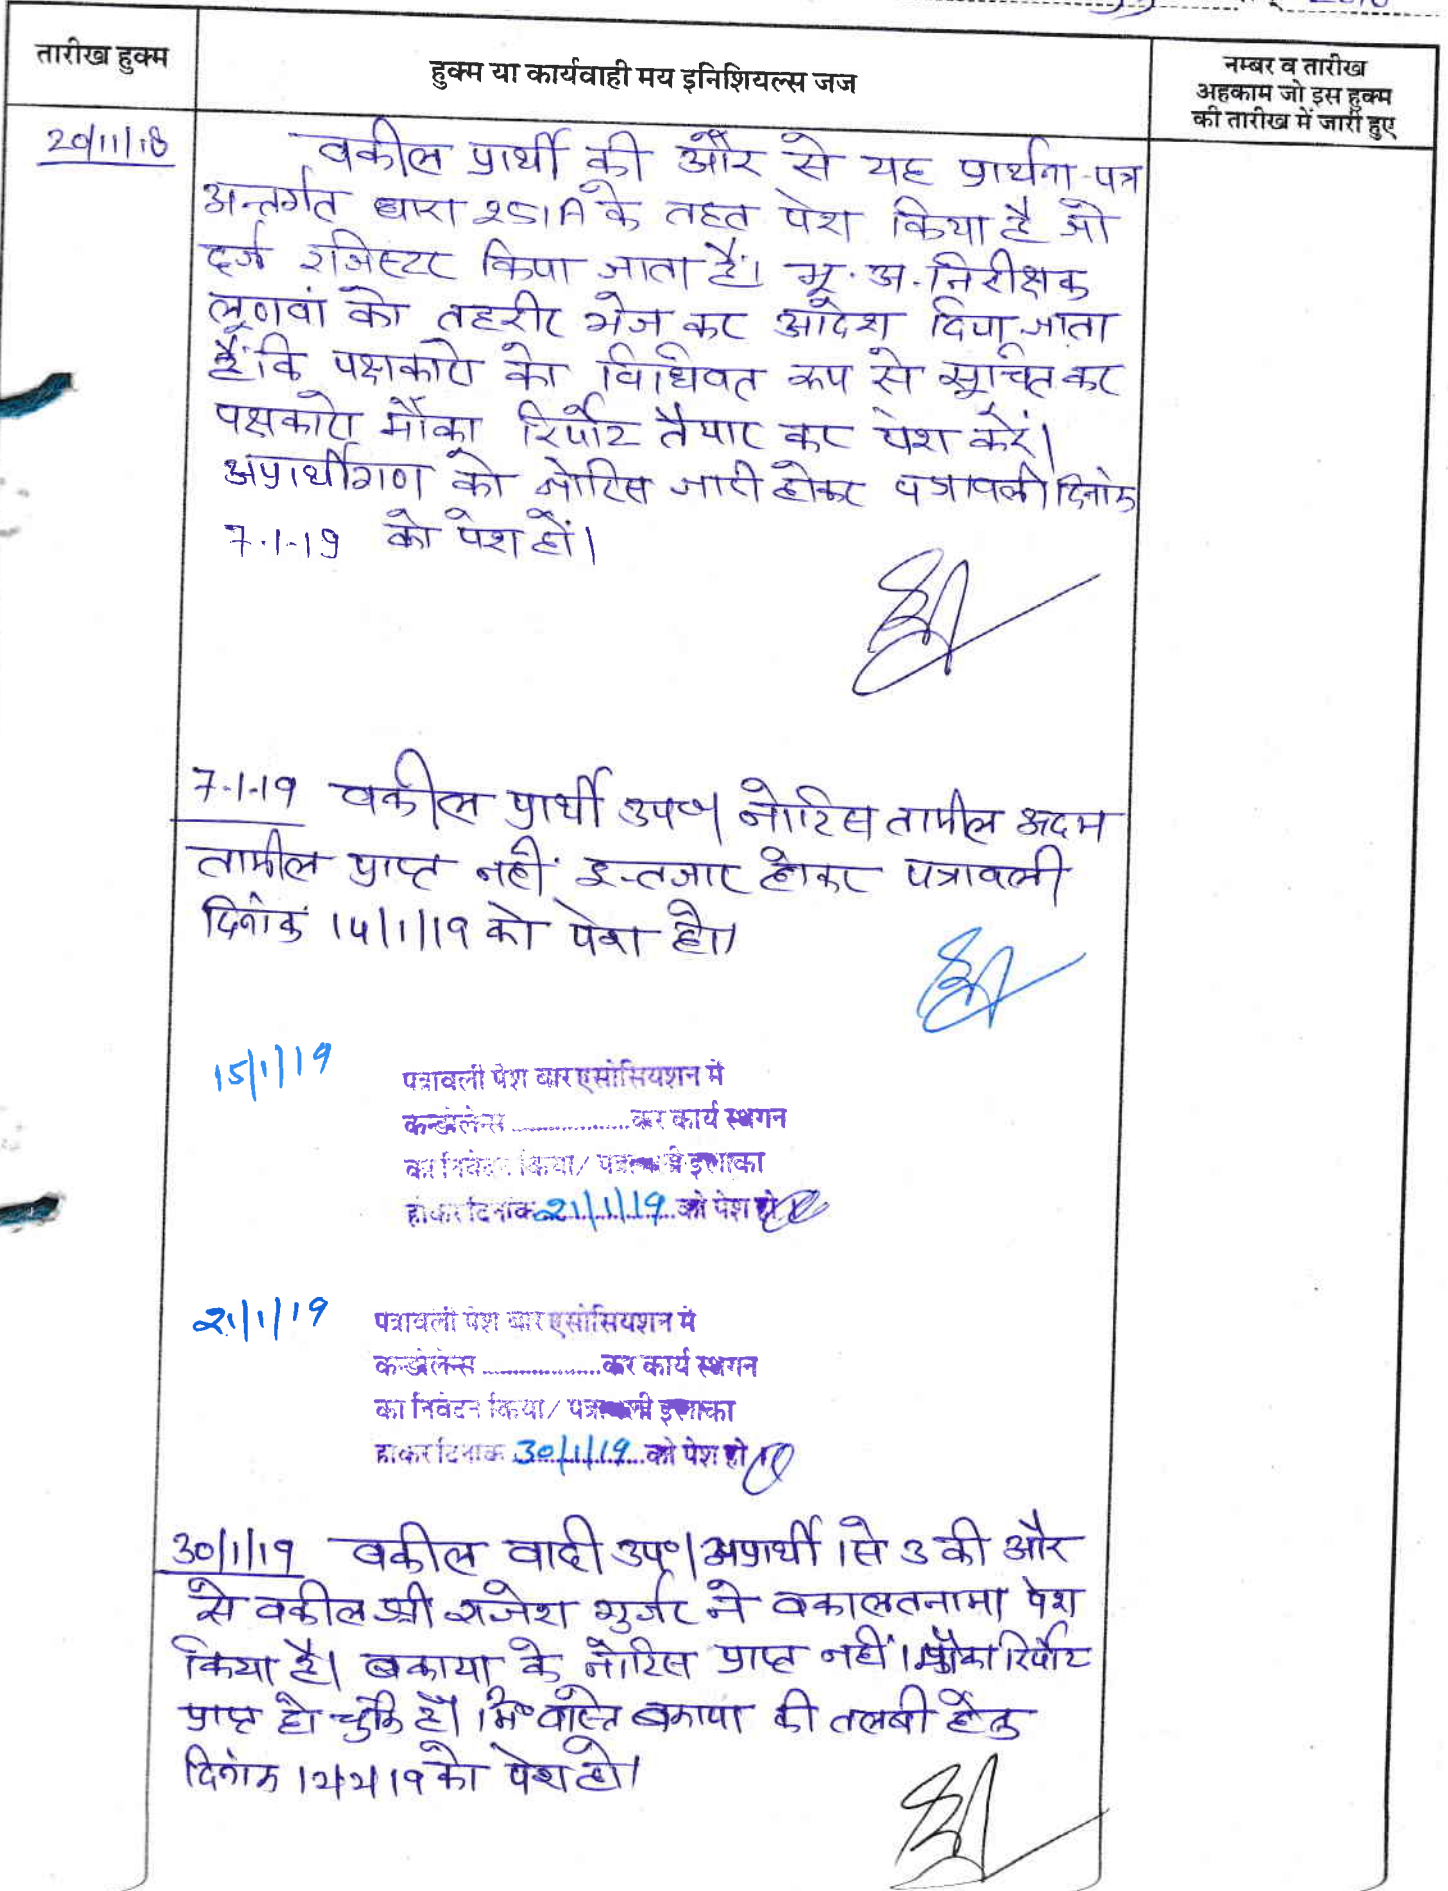 तारीख हुक्म
हुक्म या कार्यवाही मय इनिशियल्स जज
नम्बर व तारीख
अहकाम जो इस हुक्म
की तारीख में जारी हुए
20/11/18
वकील प्रार्थी की और से यह प्रार्थना-पत्र
अन्तर्गत धारा 251A के तहत पेश किया है जो
दर्ज रजिस्टर किया जाता है। भू.अ.निरीक्षक
लूणवां को तहरीर भेज कर आदेश दिया जाता
है कि पक्षकारो को विधिवत रूप से सूचित कर
पक्षकारो मौका रिर्पोट तैयार कर पेश करें।
अप्रार्थीगण को नोटिस जारी होकर पत्रावली दिनांक
7.1.19 को पेश हों।
7-1-19 वकील प्रार्थी उप०। नोटिस तामील अदम
तामील प्राप्त नहीं इन्तजार होकर पत्रावली
दिनांक 14/1/19 को पेश हो।
15/1/19
पत्रावली पेश बार एसोसियशन में
कन्डोलेन्स ............ कर कार्य स्थगन
का निवेदन किया/ पत्रावली इलाका
होकर दिनांक 21/1/19 को पेश हो
21/1/19
पत्रावली पेश बार एसोसियशन में
कन्डोलेन्स ............ कर कार्य स्थगन
का निवेदन किया/ पत्रावली इलाका
होकर दिनांक 30/1/19 को पेश हो
30/1/19 वकील वादी उप०। अप्रार्थी 1 से 3 की और
से वकील श्री राजेश गुर्जर ने वकालतनामा पेश
किया है। बकाया के नोटिस प्राप्त नहीं। मौका रिर्पोट
प्राप्त हो चुकि है। मि० वास्ते बकाया की तलबी हेतु
दिनांक 12/2/19 को पेश हो।